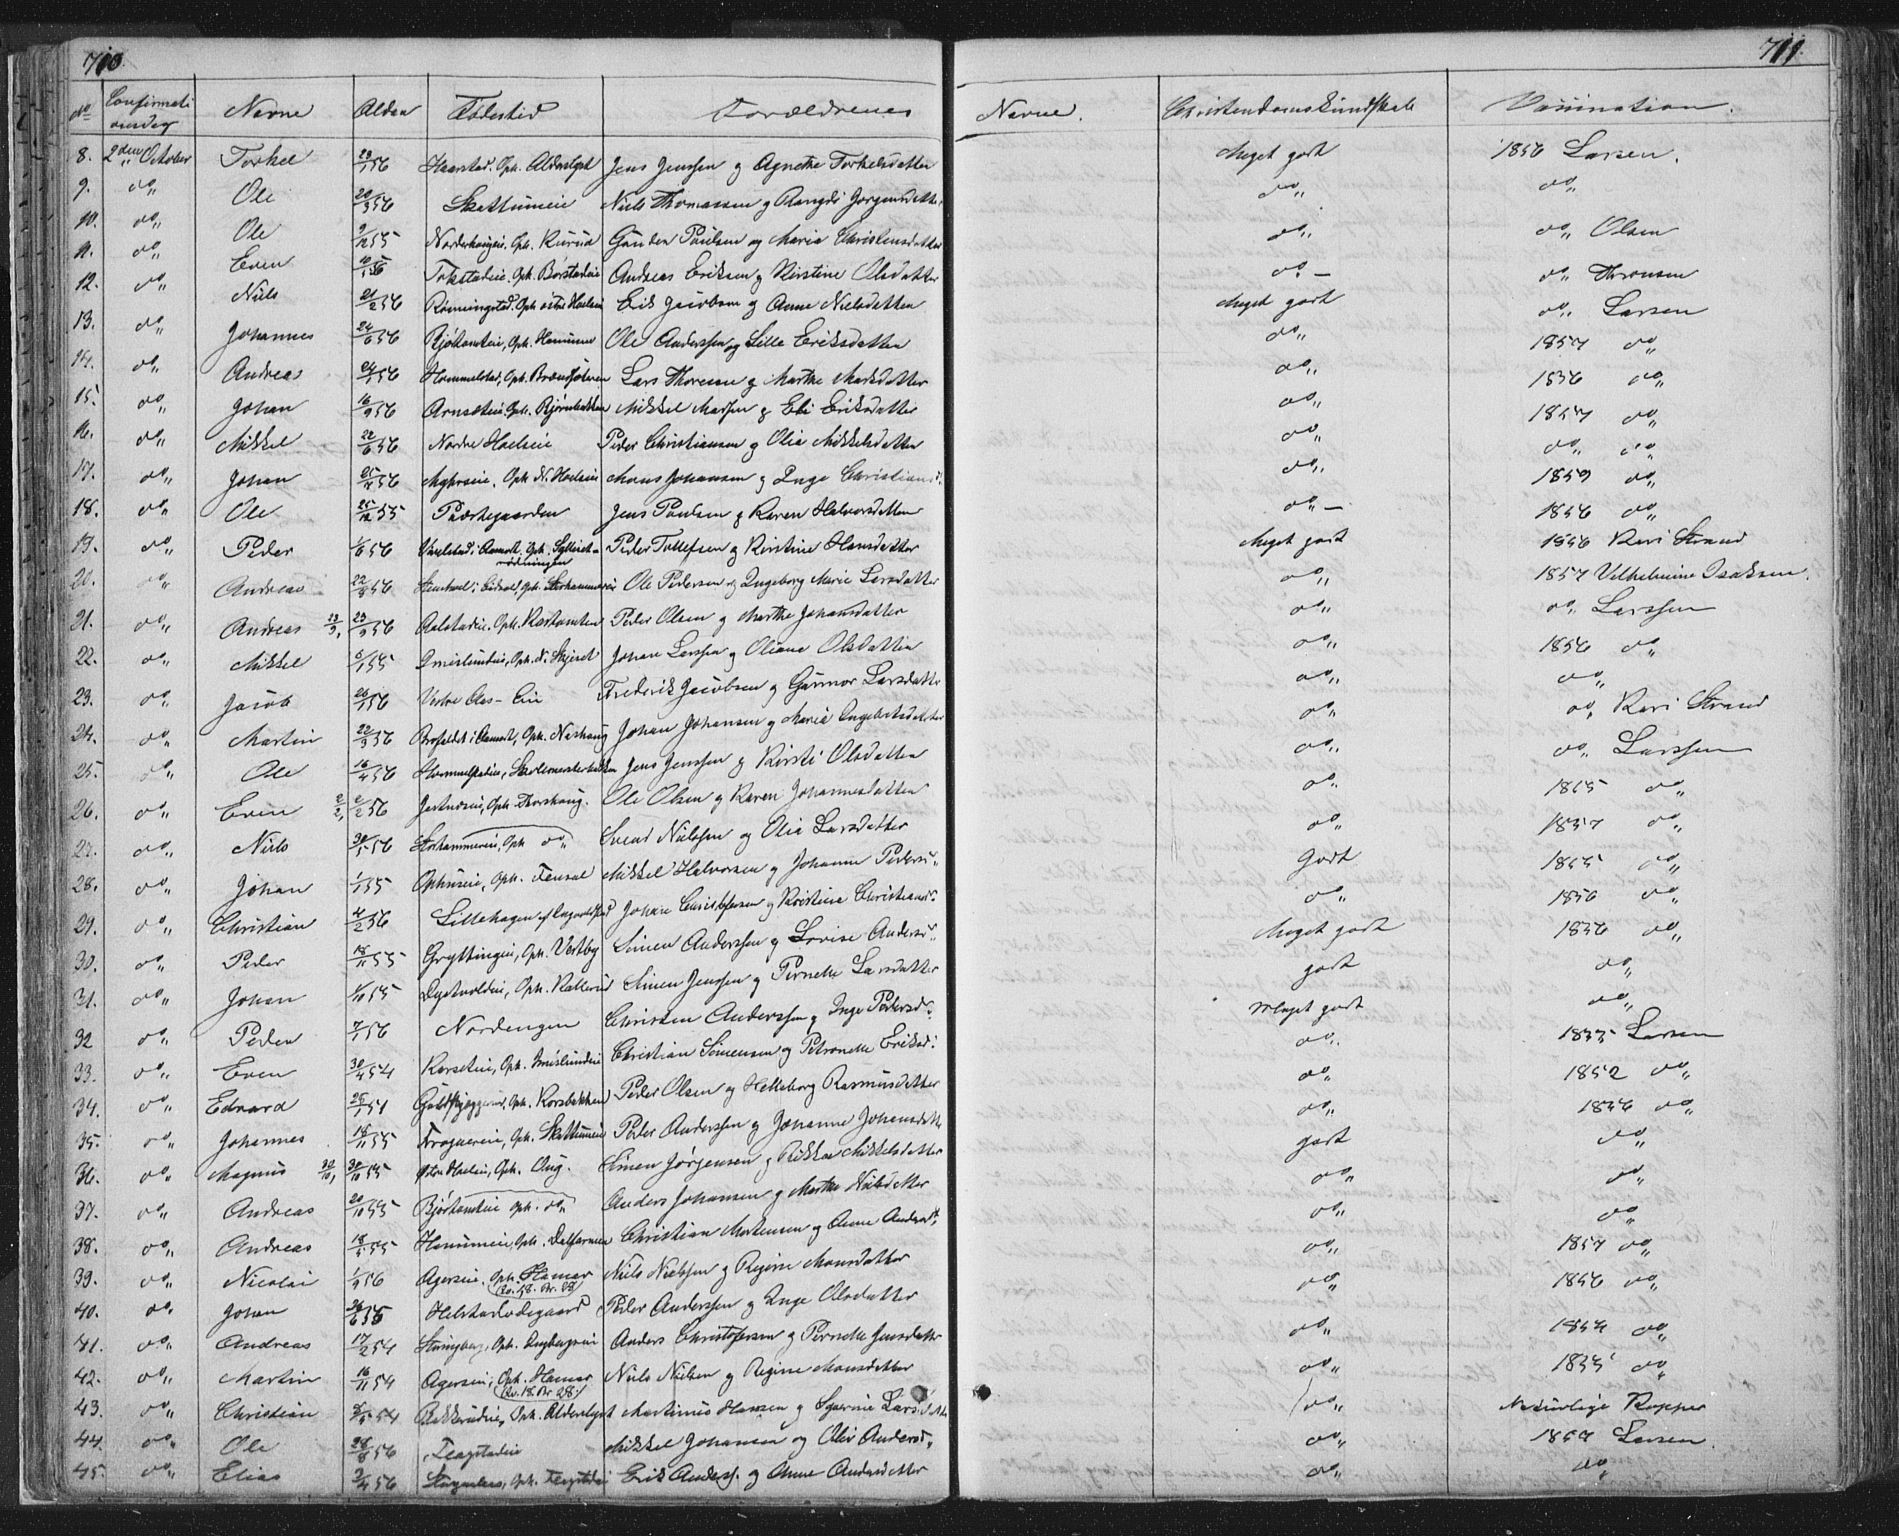 710.
711.
No Confirmationsdag Navne Alder Fødested Forældrenes Navne. Christendomskundskab Vaccination.
8. 2den October Torkel 23/1 56 Haarstad, Oph. Alderslyst Jens Jenssen og Agnethe Torkelsdatter Meget godt 1856 Larsen.
9. do„ Ole 20/3 56 Skattumeie Niels Thomassen og Rangdi Jørgensdatter do„ do„
10. do„ Ole 9/12 55 Norderhaugeie, Oph. Rurud Gunder Paulsen og Maria Christensdatter do„ do„ Olsen
11. do„ Even 10/1 56 Tokstadeie, Oph. Børstadeie Andreas Eriksen og Kirstine Olsdatter do.— do„ Thronsen
12. do„ Niels 21/2 56 Rønningstad, Oph. østre Hoelseie Erik Jacobsen og Anne Nielsdatter Meget godt do„ Larsen
13. do„ Johannes 24/6 56 Oph. Hommen Ole Anderssen og Lille Eriksdatter do„ 1857 do„
14. do„ Andreas 24/1 56 Hommelstad, Oph. Lars Thoresen og Marthe Madsdatter do„ 1856 do„
15. do„ Johan 16/9 56 Arnsæteie, Oph. Bjørnbakken Mikkel Madsen og Eli Eriksdatter do„ 1857 do„
16. do„ Mikkel 22/6 56 Nordre Hoelseie Peder Christiansen og Olia Mikkelsdatter do„ do„ do„
17. do„ Johan 56 Myhrseie, Oph. N. Hoelseie Mons Johansen og Inge Christiansd. do„ 1859 do„
18. do„ Ole 25/12 55 Præstegaarden Jens Paulsen og Karen Halvorsdatter do„— 1856 do„
19. do„ Peder 1/6 56 i Aamodt, Oph. Peder Tollefsen og Kirstine Hansdatter Meget godt 1856 Kari Strand
20. do„ Andreas 22/8 56 i Eidsvold, Oph. Storhammereie Ole Pedersen og Ingeborg Marie Larsdatter do„ 1857 Vilhelmine Isaksen.
21. do„ Andreas 23/9, 23/9 56 Aalstadeie, Oph. Peder Olsen og Marthe Johansdatter do„ do„ Larssen
22. do„ Mikkel 6/1 55 Imislundeie, Oph. N. Skjeset Johan Larssen og Oliane Olsdatter do„ 1856 do„
23. do„ Jacob 26/1 56 Vestre Aas-Eie Frederik Jacobsen og Gunnor Larsdatter do„ do„
24. do„ Martin 22/3 56 i Aamodt, Oph. Næshaug Johan Johansen og Maria Ingebretsdatter do„ do„ Kari Strand
25. do„ Ole 16/4 56 Hommelstadeie, Skolemesterbakken Jens Jenssen og Kirsti Olsdatter do„ do„ Larssen
26. do„ Even 2/2, 2/2 56 Jestnæseie, Oph. Torshaug. Ole Olsen og Karen Johannesdatter do„ 1865 do„
27. do„ Niels 30/5 56 Storhammereie, Oph do„ Svend Nielssen og Olia Larsdatter do„ 1857 do„
28. do„ Johan 1/1 55 Ophuseie, Oph. Fensal Mikkel Halvorsen og Johanne Pedersd„ Godt 1855 do„
29. do„ Christian 4/2 56 Lillehagen af Ingvoldstad Johan Christophersen og Kirstine Christiansd. do„ 1856 do„
30. do„ Peder 18/11 55 Gryttingeie, Oph. Vestby Simen Anderssen og Lovise Andersd„ Meget godt 1856 do„
31. do„ Johan 1/10 55 Dystvoldeie, Oph. Kallerud Simen Jenssen og Pernelle Larsdatter godt do„
32 do„ Peder 7/1 56 Nordengen Christen Anderssen og Inge Pedersd. Meget godt do„
33. do„ Even 30/4 54 Korsetie, Oph. Imislundeie Christian Simensen og Petronelle Eriksd. do„ 1855 Larsen
34. do„ Edvard 25/1 51 Oph. Korsbakken Peder Olsen og Helleborg Rasmusdatter do„ 1852 do„
35. do„ Johannes 18/11 55 Frognereie, Oph. Skattumeie Peder Anderssen og Johanne Johansdatter do„ 1856 do„
36. do„ Magnus 30/10, 30/10 55 Østre Hoelseie, Oph. Aug. Simen Jørgensen og Rikka Mikkelsdatter godt do„
37. do„ Andreas 20/10 55 Oph. do„ Anders Johansen og Marthe Nielsdatter do„ do„
38. do„ Andreas 18/5 55 Hommeneie, Oph. Christian Mortensen og Anne Andersd. do„ do„
39. do„ Nicolai 1/9 56 Agerseie, Oph. Hamar Niels Nielssen og Regine Monsdatter do„ 1857 do„
Rv. 18. Br. 28
40. do„ Johan 26/6 55 Helstadødegaard Peder Anderssen og Inge Olsdatter do„ 1856 do„
41. do„ Andreas 17/2 54 Oph. Anders Christophersen og Pernelle Jensdatter do„ 1854 do„
42. do„ Martin 16/11 54 Agerseie, Oph. Hamar Niels Nielsen og Regine Monsdatter do„ 1855 do„
Rv. 18. Br 28.
43. do„ Christian 54 Bakkerudeie, Oph. Alderslyst Martinus Hansen og Larsdatter do„ Naturlige Kopper
44. do„ Ole 28/8 56 Flagstadeie Mikkel Johansen og Oliv Andersd„ do„ 1854 Larsen.
45. do„ Elias 2/4 56 Oph. Flagstadeie Erik Anderss. og Anne Andersdatter do„ do„